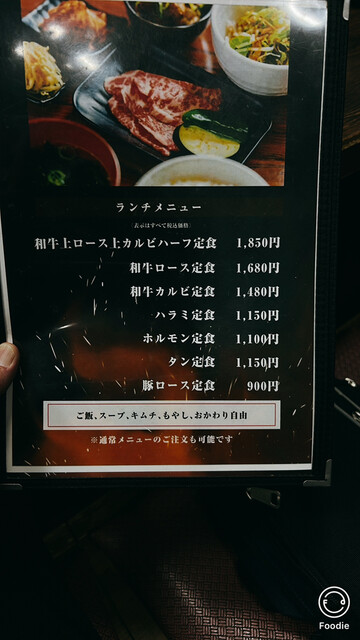 ランチメニュー
(表示はすべて税込価格)
和牛上ロース上カルビハーフ定食 1,850円
和牛ロース定食 1,680円
和牛カルビ定食 1,480円
ハラミ定食 1,150円
ホルモン定食 1,100円
タン定食 1,150円
豚ロース定食 900円
ご飯、スープ、キムチ、もやし、おかわり自由
※通常メニューのご注文も可能です
Foodie